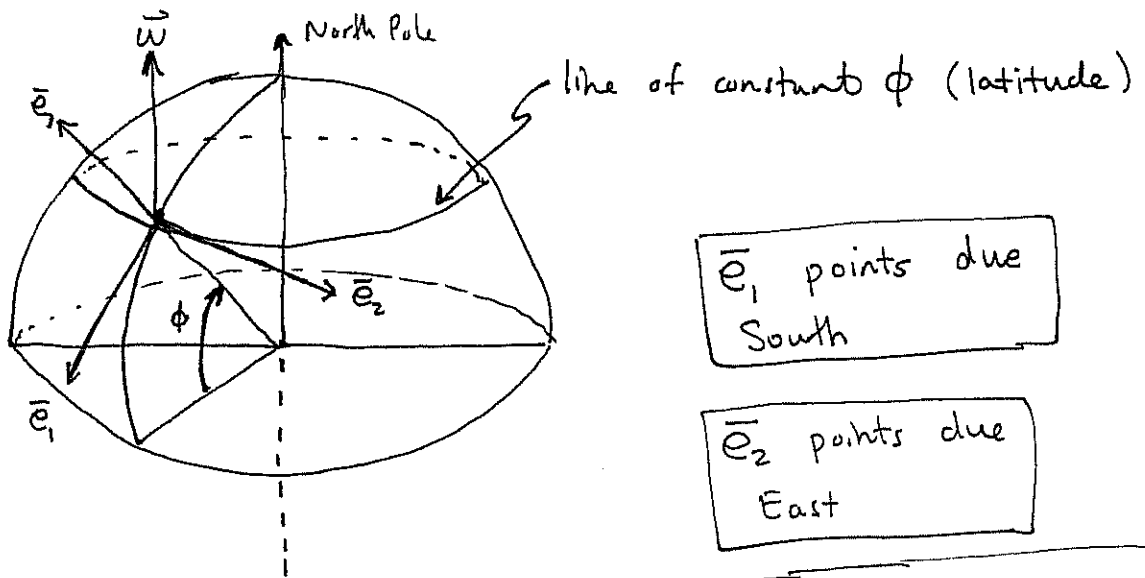 ω⃗
North Pole
line of constant φ (latitude)
e̅₃
φ
e̅₂
e̅₁
e̅₁ points due
South
e̅₂ points due
East